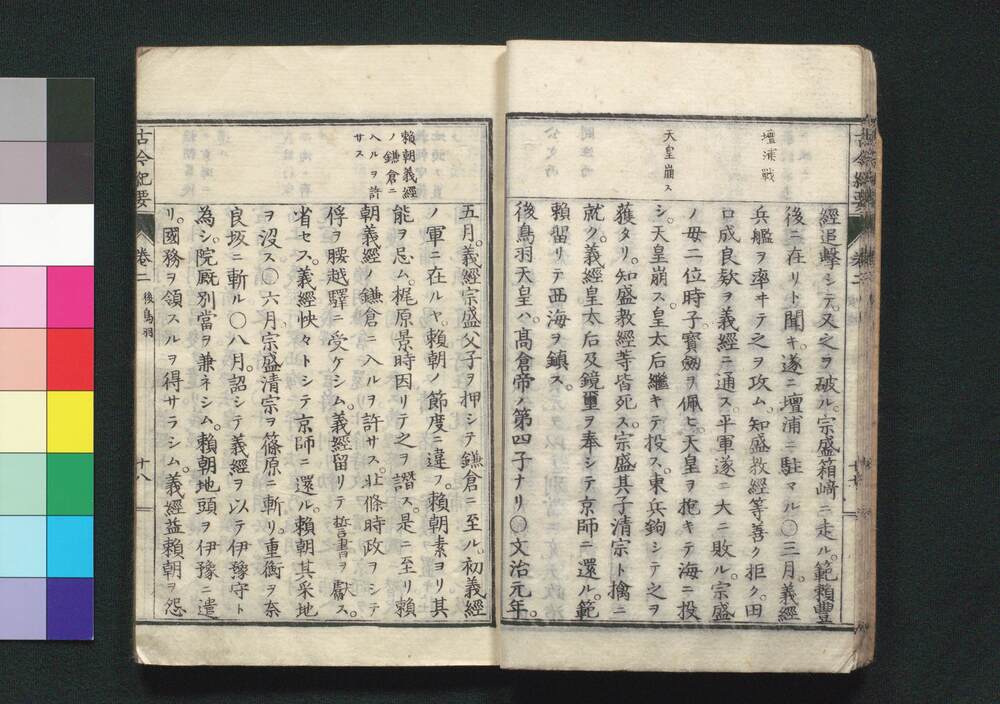 壇浦戰
天皇崩ス
經追擊シテ。又之ヲ破ル。宗盛箱﨑ニ走ル。範賴豐
後ニ在リト聞キ。遂ニ壇浦ニ駐マル〇三月。義經
兵艦ヲ率ヰテ之ヲ攻ム。知盛教經等善ク拒ク。田
口成良欵ヲ義經ニ通ス。平軍遂ニ大ニ敗ル。宗盛
ノ母二位時子。寳劔ヲ佩ヒ。天皇ヲ抱キテ海ニ投
シ。天皇崩ス。皇太后繼キテ投ス。東兵鉤シテ之ヲ
獲タリ。知盛教經等皆死ス。宗盛其子清宗ト擒ニ
就ク。義經皇太后及鏡璽ヲ奉シテ京師ニ還ル。範
賴留リテ西海ヲ鎮ス。
後鳥羽天皇ハ。髙倉帝ノ第四子ナリ〇文治元年。
賴朝義經
ノ鎌倉ニ
入ルヲ許
サス
五月。義經宗盛父子ヲ押シテ鎌倉ニ至ル。初義經
ノ軍ニ在ルヤ。賴朝ノ節度ニ違フ。賴朝素ヨリ其
能ヲ忌ム。梶原景時因リテ之ヲ譖ス。是ニ至リ賴
朝義經ノ鎌倉ニ入ルヲ許サス。北條時政ヲシテ
俘ヲ腰越驛ニ受ケシム。義經留リテ誓書ヲ獻ス。
省セス。義經怏々トシテ京師ニ還ル。賴朝其采地
ヲ沒ス〇六月。宗盛清宗ヲ篠原ニ斬リ。重衡ヲ奈
良坂ニ斬ル〇八月。詔シテ義經ヲ以テ伊豫守ト
為シ。院厩別當ヲ兼ネシム。賴朝地頭ヲ伊豫ニ遣
リ。國務ヲ領スルヲ得サラシム。義經益賴朝ヲ怨
古今紀要
卷二
後鳥羽
十八